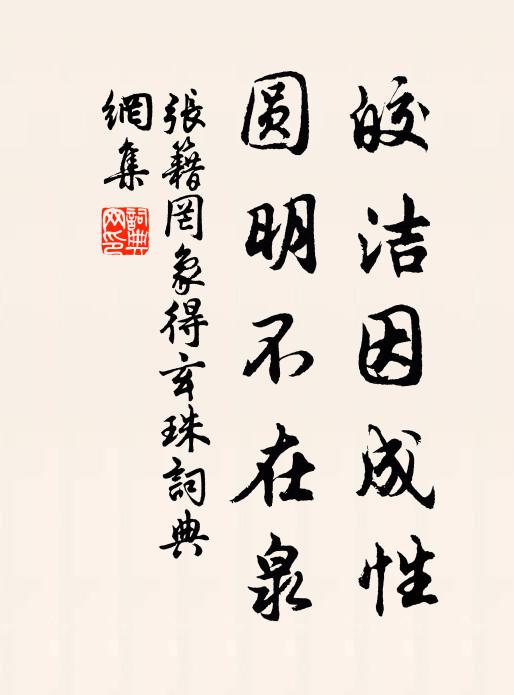 皎洁因成性
圆明不在泉
張籍罔象得玄珠詞典
網集
詞典
网印